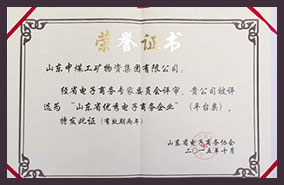 荣誉证书
山东中煤工矿物资集团有限公司：
经省电子商务专家委员会评审，贵公司被评
选为“山东省优秀电子商务企业”（平台类），
特发此证（有效期两年）
山东省电子商务协会
二〇一五年十月